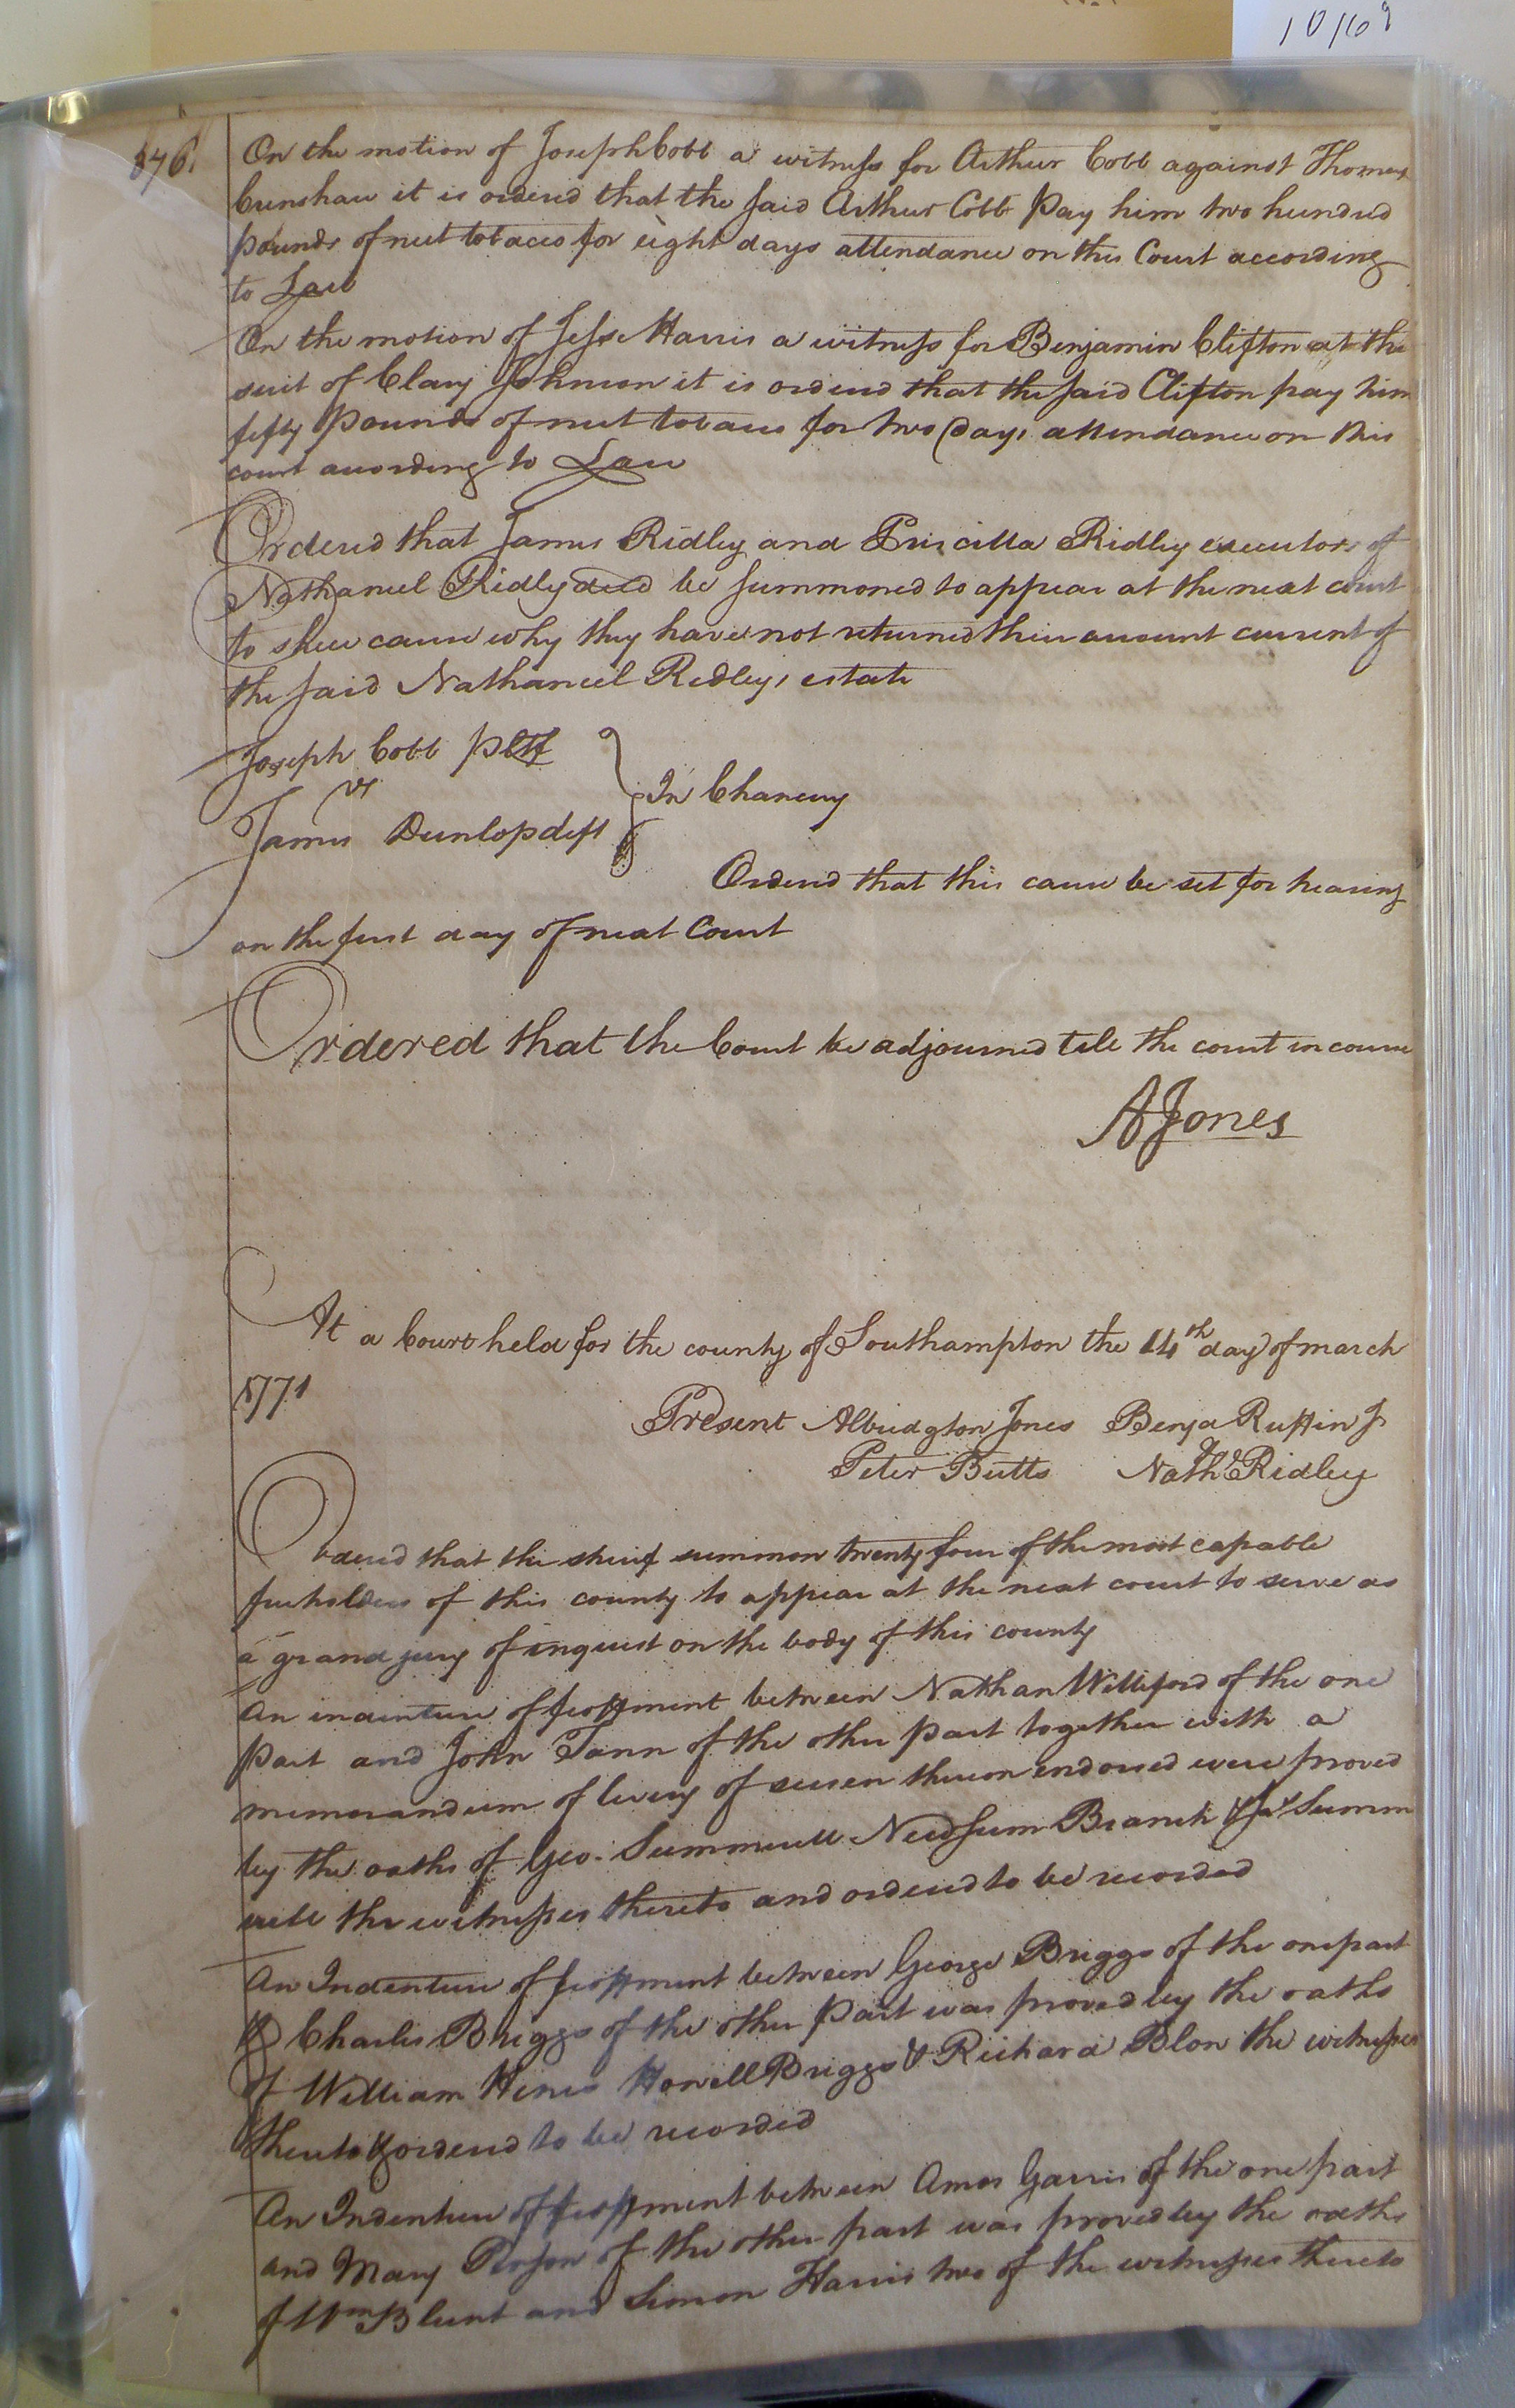 10/69
376.
On the motion of Joseph Cobb a witness for Arthur Cobb against Thomas
Crenshaw it is ordered that the said Arthur Cobb Pay him two hundred
pounds of nett tobacco for eight days attendance on this Court according
to Law
On the motion of Jesse Harris a witness for Benjamin Clifton at the
suit of Clary Johnson it is ordered that the said Clifton pay him
fifty pounds of nett tobacco for two days attendance on this
court according to Law
Ordered that James Ridley and Priscilla Ridley executors of
Nathaniel Ridley decd be summoned to appear at the next court
to shew cause why they have not returned their account current of
the said Nathaniel Ridleys estate
Joseph Cobb pltf
vs
In Chancery
James Dunlop deft
Ordered that this cause be set for hearing
on the first day of next Court
Ordered that the Court be adjourned till the court in course
AJones
At a Court held for the county of Southampton the 14th day of march
1771
Present Albridgton Jones Benja Ruffin Jr
Peter Butts Nathl Ridley
Ordered that the sherif summon twenty four of the most capable
freeholders of this county to appear at the next court to serve as
a grand jury of inquest on the body of this county
An indenture of feoffment between Nathan Williford of the one
part and John Tann of the other part together with a
memorandum of livery of seisen thereon endorsed were proved
by the oaths of Geo. Summerell Newsum Branch & Jas Summ
erell the witnesses thereto and ordered to be recorded
An Indenture of feoffment between George Briggs of the one part
& Charles Briggs of the other part was proved by the oaths
of William Hines Howell Briggs & Richard Blow the witnesses
thereto & ordered to be recorded
An Indenture of feoffment between Amos Garris of the one part
and Mary Person of the other part was proved by the oaths
of Wm Blunt and Simon Harris two of the witnesses thereto